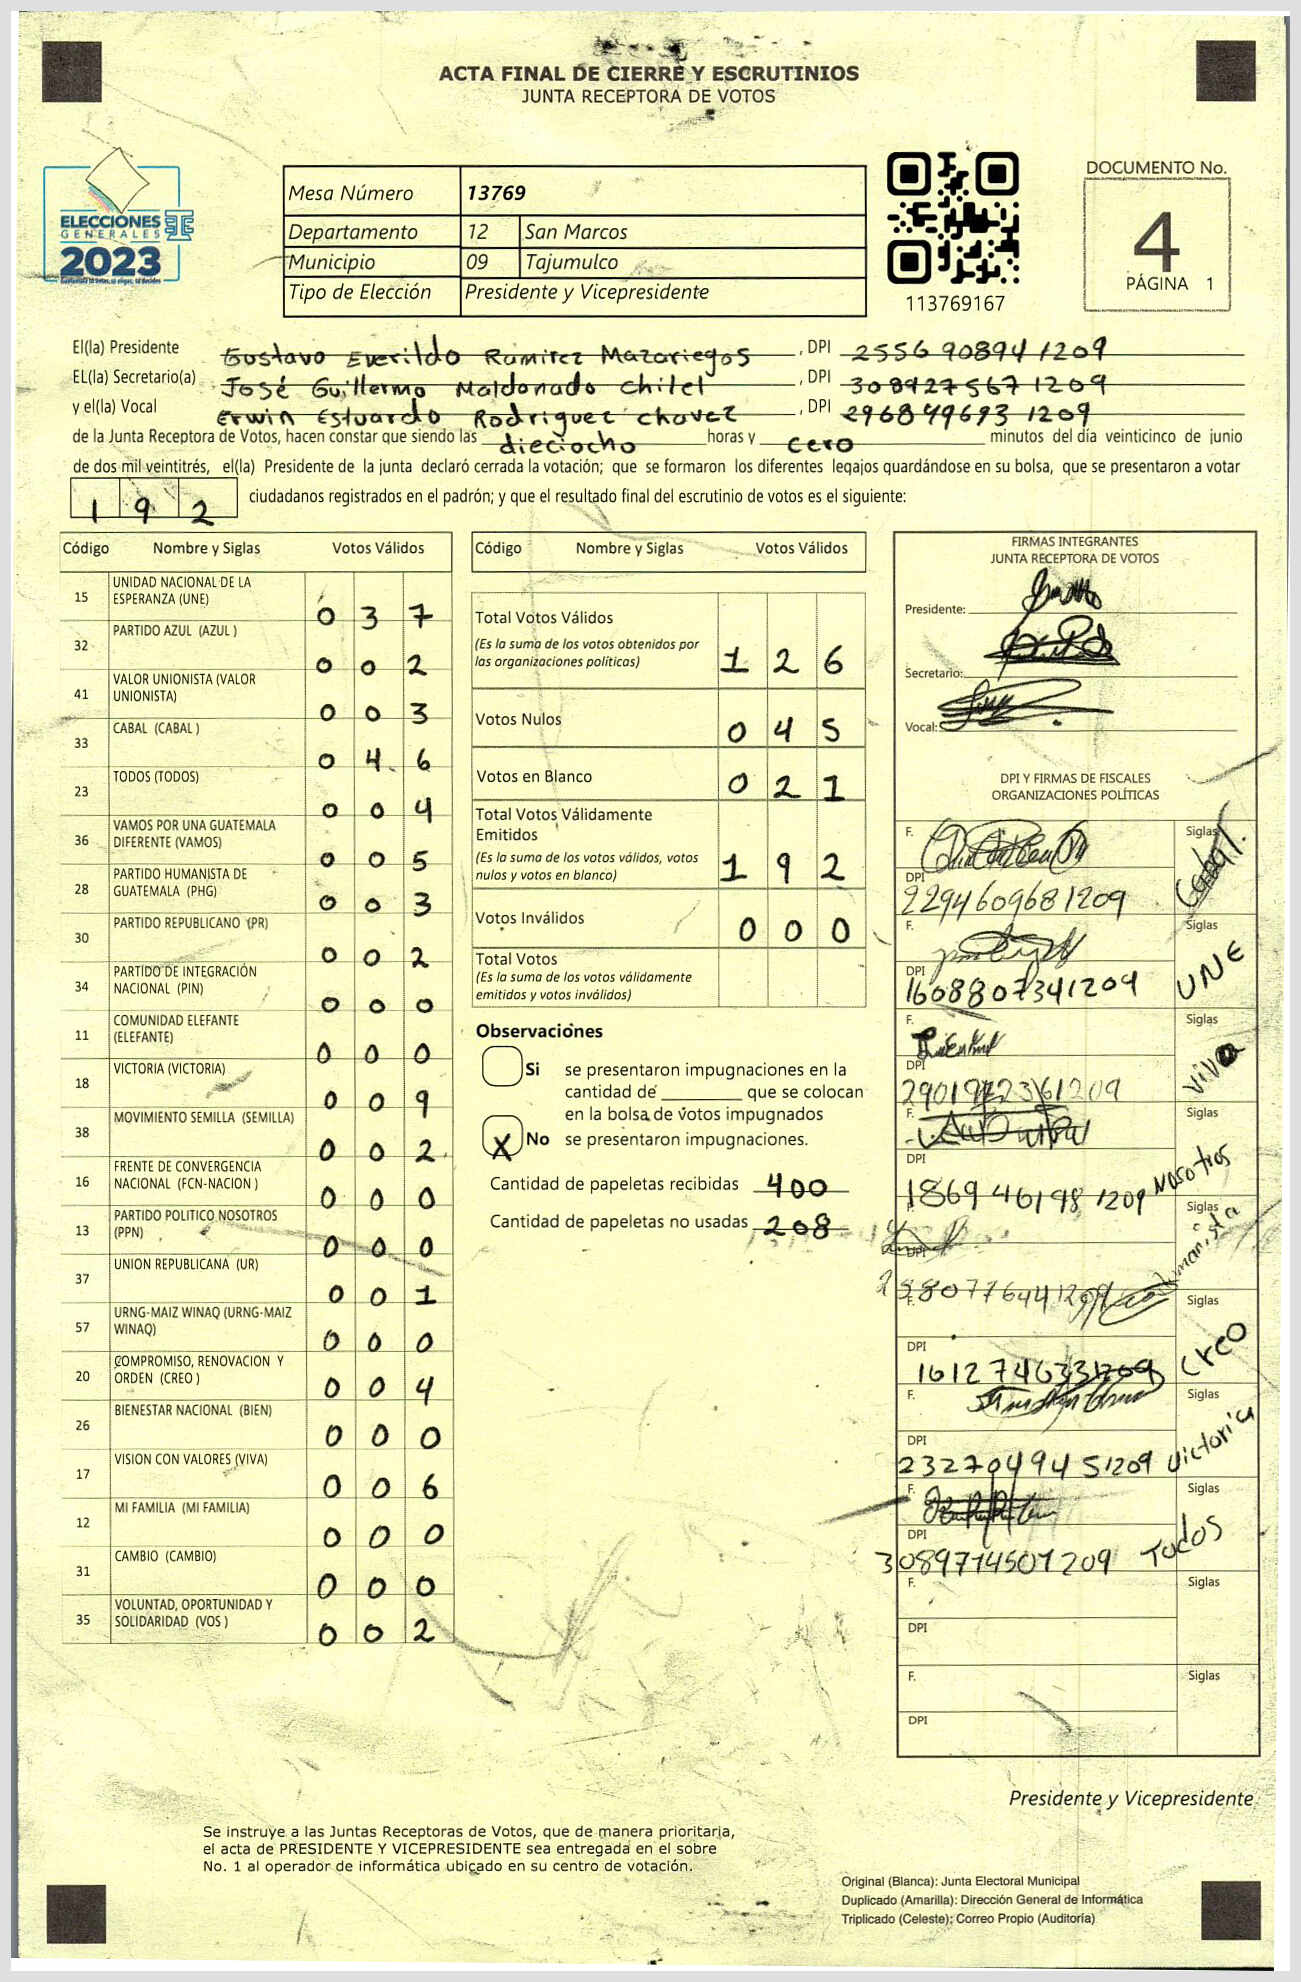 ACTA FINAL DE CIERRE Y ESCRUTINIOS
JUNTA RECEPTORA DE VOTOS
ELECCIONES
GENERALES
2023
Mesa Número 13769
Departamento 12 San Marcos
Municipio 09 Tajumulco
Tipo de Elección Presidente y Vicepresidente
113769167
DOCUMENTO No.
4
PÁGINA 1
El(la) Presidente Gustavo Everildo Ramirez Mazariegos , DPI 2556 90894 1209
EL(la) Secretario(a) José Guillermo Maldonado Chilel , DPI 308427567 1209
y el(la) Vocal Erwin Estuardo Rodriguez Chavez , DPI 296849693 1209
de la Junta Receptora de Votos, hacen constar que siendo las dieciocho horas y cero minutos del día veinticinco de junio
de dos mil veintitrés, el(la) Presidente de la junta declaró cerrada la votación; que se formaron los diferentes legajos guardándose en su bolsa, que se presentaron a votar
192 ciudadanos registrados en el padrón; y que el resultado final del escrutinio de votos es el siguiente:
Código Nombre y Siglas Votos Válidos
15 UNIDAD NACIONAL DE LA ESPERANZA (UNE) 0 3 7
32 PARTIDO AZUL (AZUL ) 0 0 2
41 VALOR UNIONISTA (VALOR UNIONISTA) 0 0 3
33 CABAL (CABAL ) 0 4 6
23 TODOS (TODOS) 0 0 4
36 VAMOS POR UNA GUATEMALA DIFERENTE (VAMOS) 0 0 5
28 PARTIDO HUMANISTA DE GUATEMALA (PHG) 0 0 3
30 PARTIDO REPUBLICANO (PR) 0 0 2
34 PARTIDO DE INTEGRACIÓN NACIONAL (PIN) 0 0 0
11 COMUNIDAD ELEFANTE (ELEFANTE) 0 0 0
18 VICTORIA (VICTORIA) 0 0 9
38 MOVIMIENTO SEMILLA (SEMILLA) 0 0 2
16 FRENTE DE CONVERGENCIA NACIONAL (FCN-NACION ) 0 0 0
13 PARTIDO POLITICO NOSOTROS (PPN) 0 0 0
37 UNION REPUBLICANA (UR) 0 0 1
57 URNG-MAIZ WINAQ (URNG-MAIZ WINAQ) 0 0 0
20 COMPROMISO, RENOVACION Y ORDEN (CREO ) 0 0 4
26 BIENESTAR NACIONAL (BIEN) 0 0 0
17 VISION CON VALORES (VIVA) 0 0 6
12 MI FAMILIA (MI FAMILIA) 0 0 0
31 CAMBIO (CAMBIO) 0 0 0
35 VOLUNTAD, OPORTUNIDAD Y SOLIDARIDAD (VOS ) 0 0 2
Código Nombre y Siglas Votos Válidos
Total Votos Válidos 1 2 6
(Es la suma de los votos obtenidos por
las organizaciones políticas)
Votos Nulos 0 4 5
Votos en Blanco 0 2 1
Total Votos Válidamente
Emitidos 1 9 2
(Es la suma de los votos válidos, votos
nulos y votos en blanco)
Votos Inválidos 0 0 0
Total Votos
(Es la suma de los votos válidamente
emitidos y votos inválidos)
Observaciones
Si se presentaron impugnaciones en la
cantidad de que se colocan
en la bolsa de votos impugnados
X No se presentaron impugnaciones.
Cantidad de papeletas recibidas 400
Cantidad de papeletas no usadas 208
FIRMAS INTEGRANTES
JUNTA RECEPTORA DE VOTOS
Presidente:
Secretario:
Vocal:
DPI Y FIRMAS DE FISCALES
ORGANIZACIONES POLÍTICAS
F. Siglas Cabal
DPI 2294609681209
F. Siglas UNE
DPI 1608807341209
F. Siglas Viva
DPI
F. Siglas Nosotros
DPI 1869 46198 1209
F. Siglas Humanista
DPI
F. Siglas Creo
DPI 1612746331209
F. Siglas Victoria
DPI 2327049451209
F. Siglas Todos
DPI 3089714501209
F. Siglas
DPI
F. Siglas
DPI
Presidente y Vicepresidente
Se instruye a las Juntas Receptoras de Votos, que de manera prioritaria,
el acta de PRESIDENTE Y VICEPRESIDENTE sea entregada en el sobre
No. 1 al operador de informática ubicado en su centro de votación.
Original (Blanca): Junta Electoral Municipal
Duplicado (Amarilla): Dirección General de Informática
Triplicado (Celeste): Correo Propio (Auditoría)